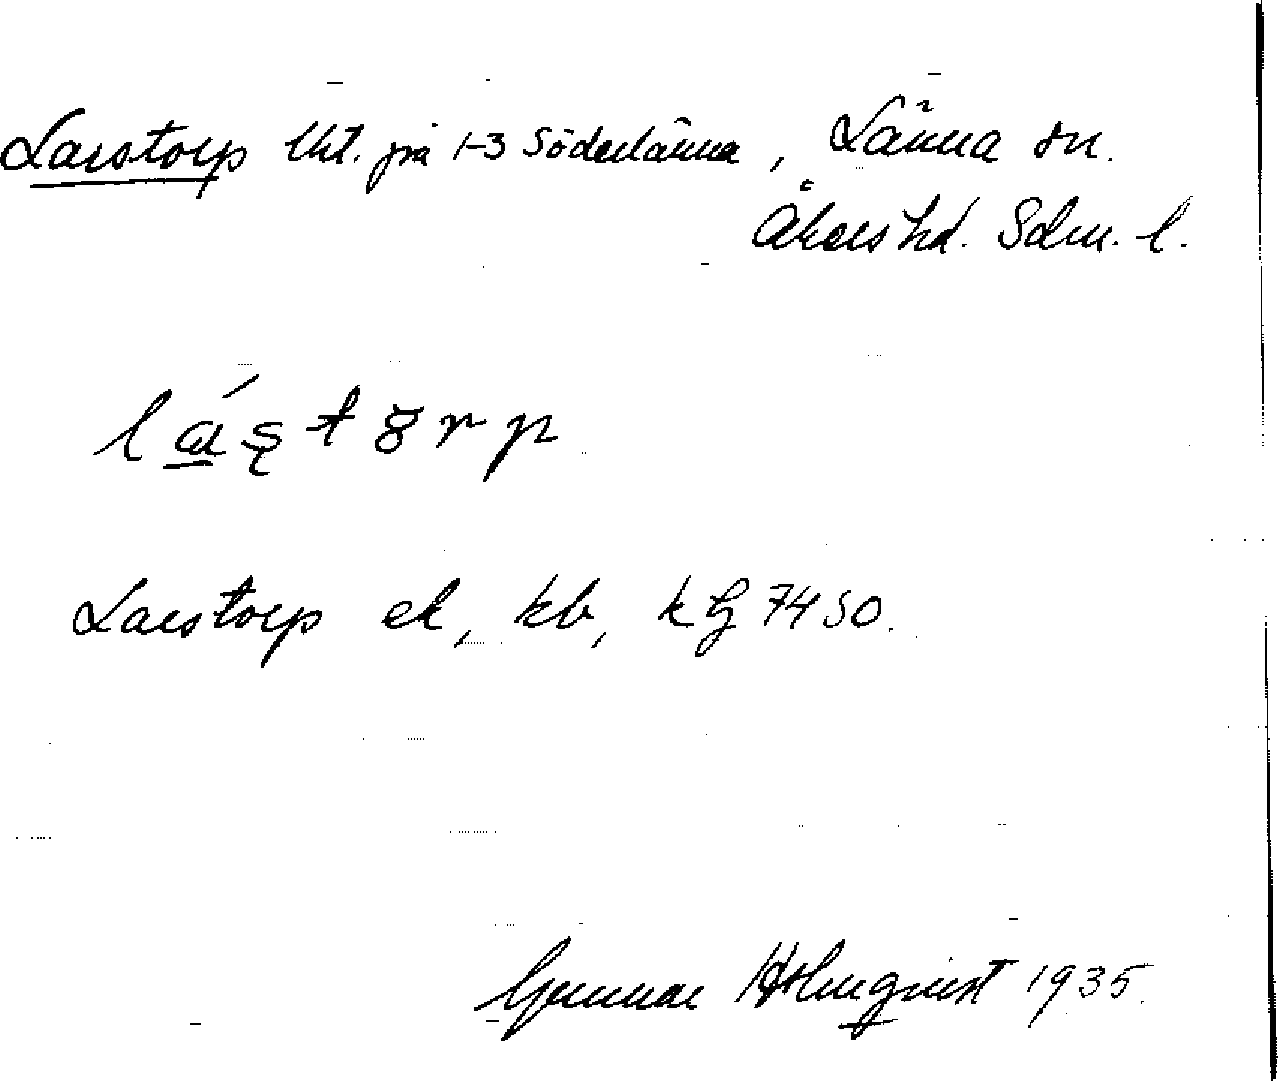 Larstorp Uht. på 1-3 Söderlänna, Länna sn.
Åkers hd. Sdm. l.
lá̱s̨tȣrp
Larstorp ek, kb, kfj 7450.
Gunnar Holmqvist 1935.